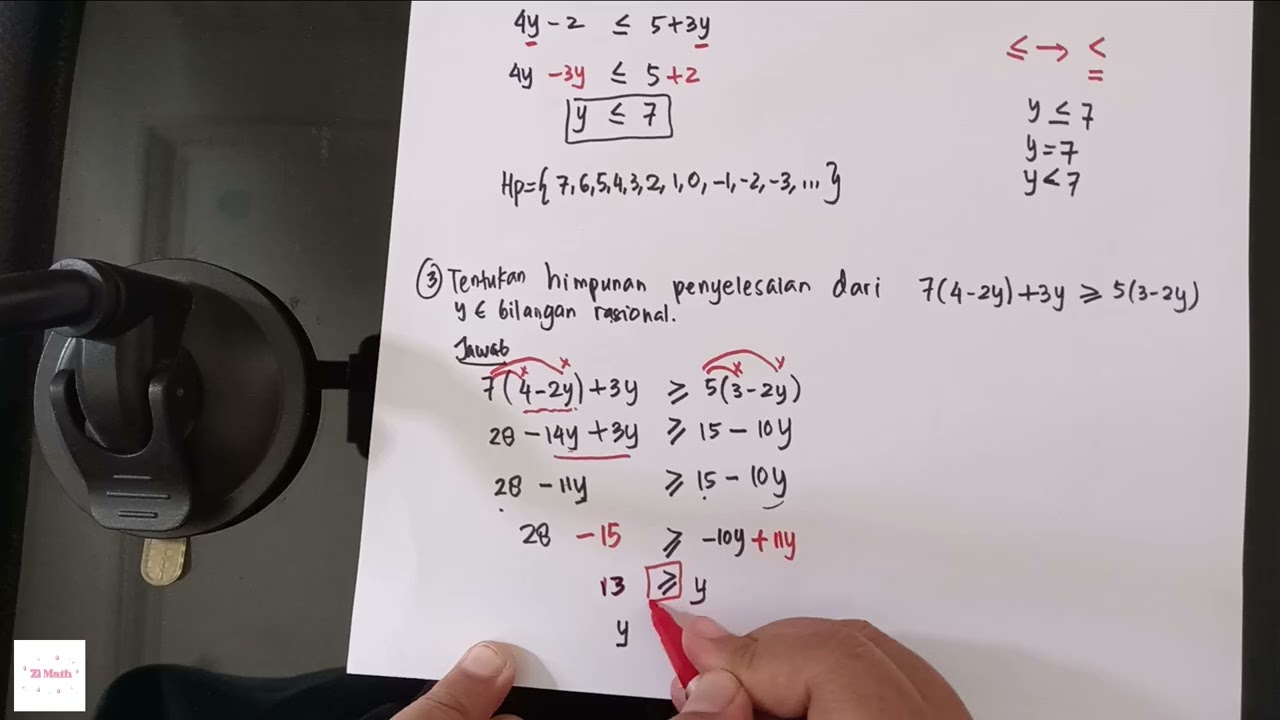 4y - 2 ≤ 5 + 3y
4y - 3y ≤ 5 + 2
y ≤ 7
Hp = { 7, 6, 5, 4, 3, 2, 1, 0, -1, -2, -3, ... }
≤ → <
=
y ≤ 7
y = 7
y < 7
③ Tentukan himpunan penyelesaian dari 7(4-2y)+3y ≥ 5(3-2y)
y ∈ bilangan rasional.
Jawab
7(4-2y)+3y ≥ 5(3-2y)
28 - 14y + 3y ≥ 15 - 10y
28 - 11y ≥ 15 - 10y
28 - 15 ≥ -10y + 11y
13 ≥ y
y
Zi Math